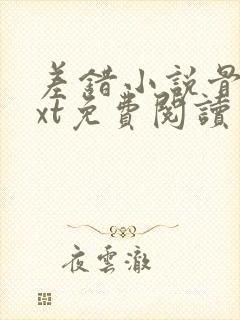 差錯小說最
xt免費閱讀
夜雲澈